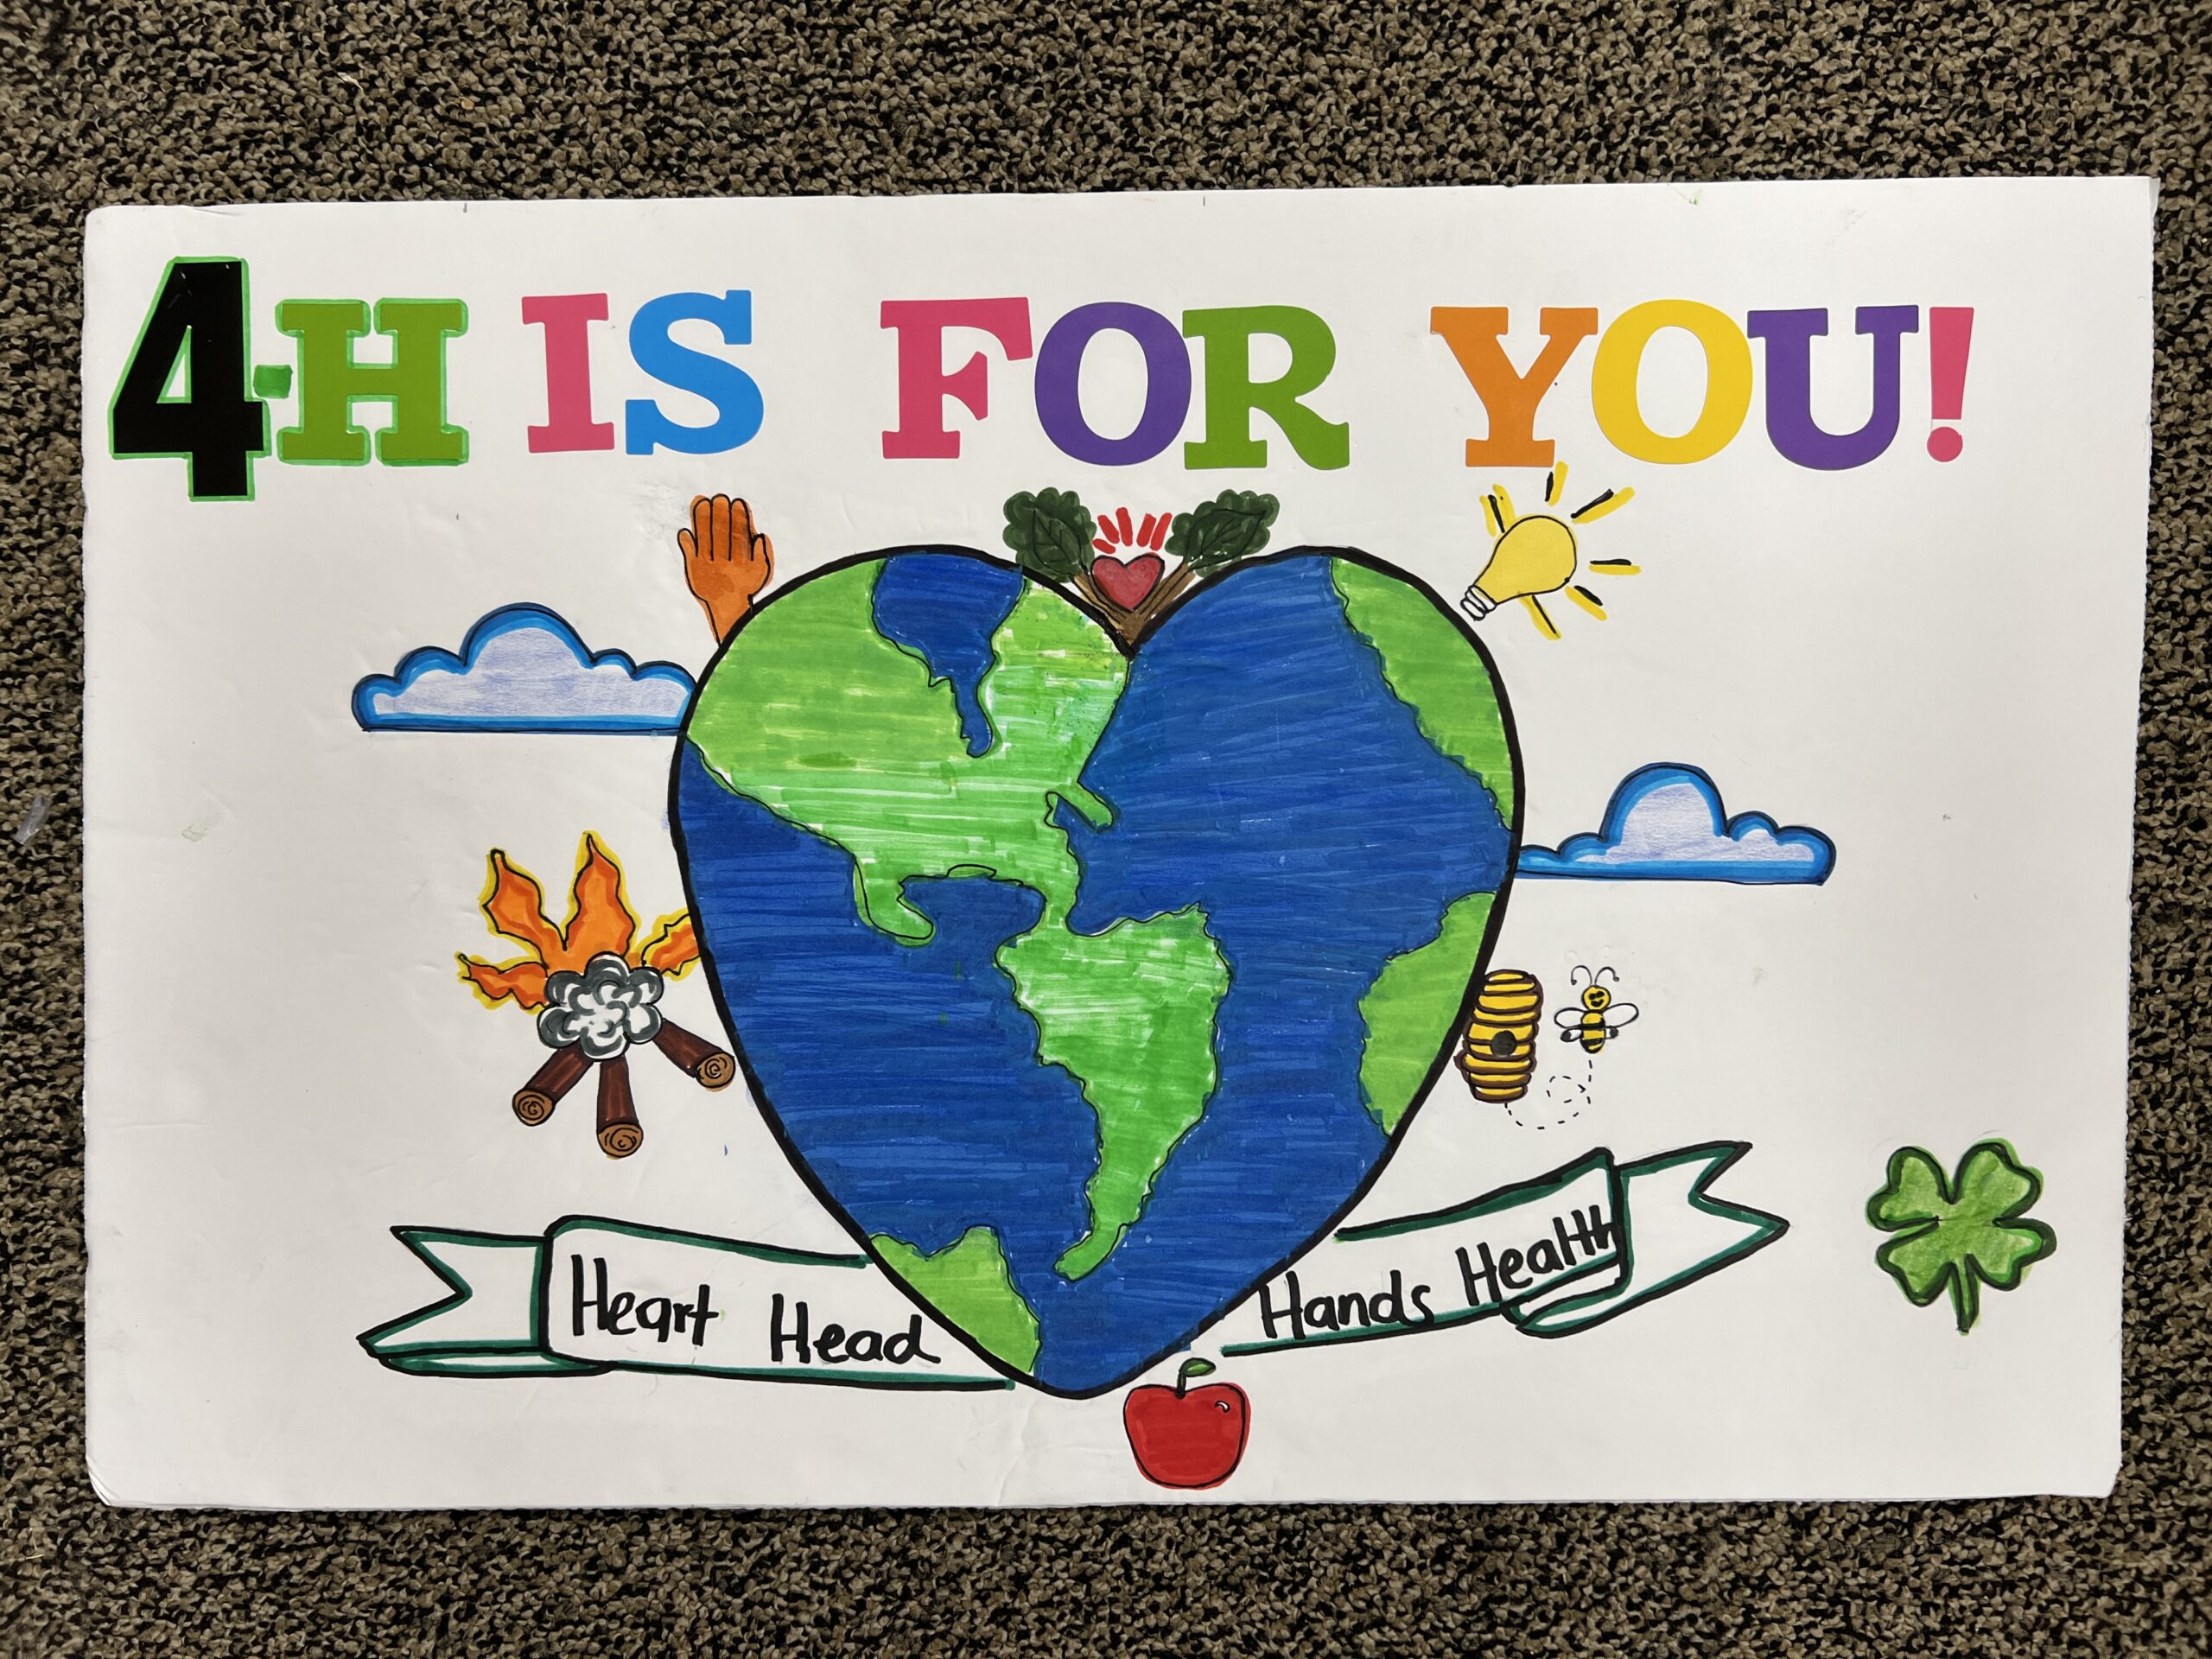 4-H IS FOR YOU!
Heart Head Hands Health